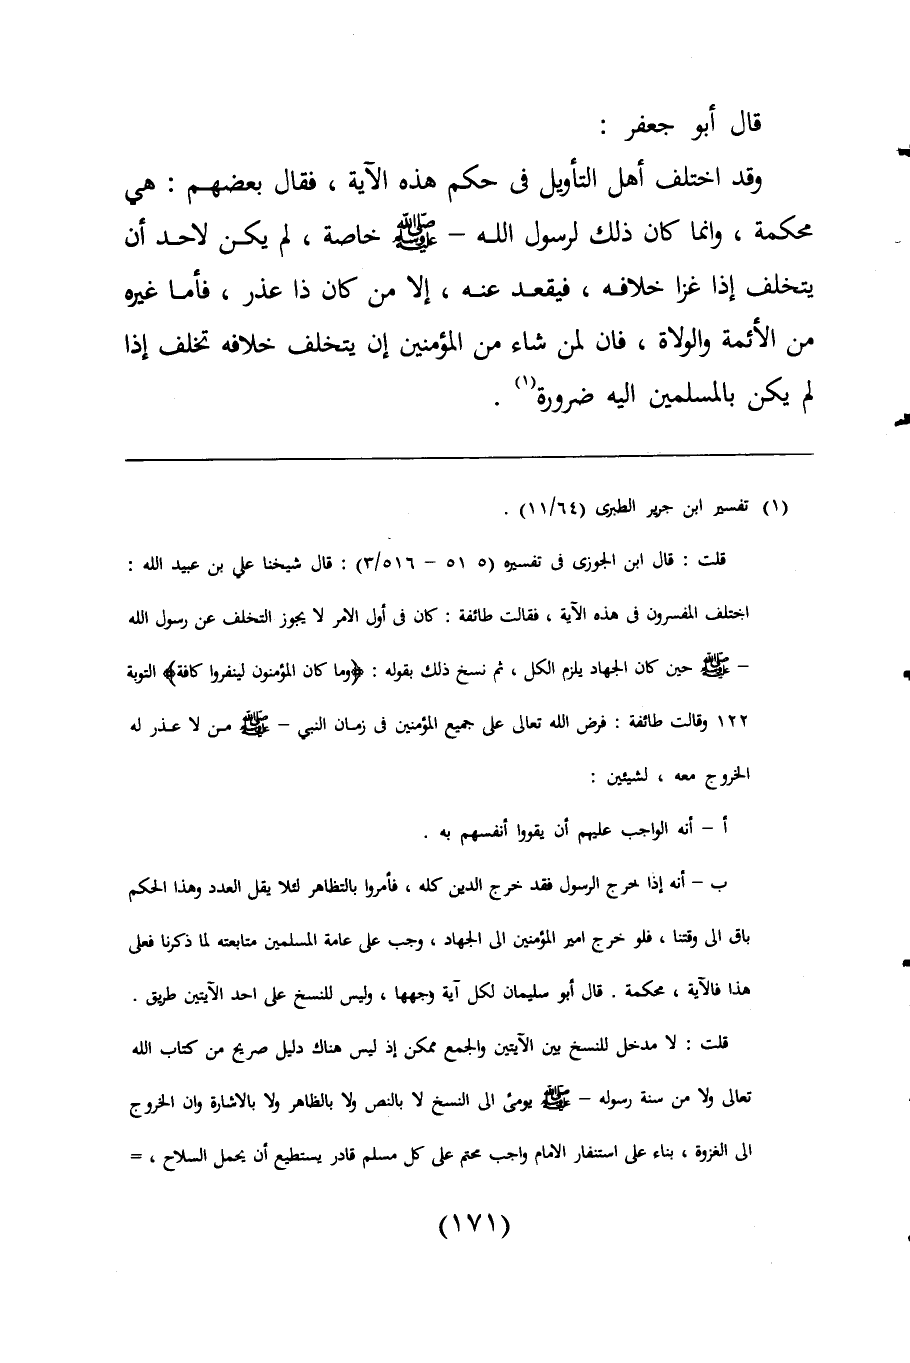 قال أبو جعفر :
وقد اختلف أهل التأويل فى حكم هذه الآية ، فقال بعضهم : هي
محكمة ، وانما كان ذلك لرسول الله – ﷺ خاصة ، لم يكن لاحد أن
يتخلف إذا غزا خلافه ، فيقعد عنه ، إلا من كان ذا عذر ، فأما غيره
من الأئمة والولاة ، فان لمن شاء من المؤمنين إن يتخلف خلافه تخلف إذا
لم يكن بالمسلمين اليه ضرورة(١) .
(١) تفسير ابن جرير الطبرى (١١/٦٤) .
قلت : قال ابن الجوزى فى تفسيره (٥ ٥١ – ٣/٥١٦) : قال شيخنا علي بن عبيد الله :
اختلف المفسرون فى هذه الآية ، فقالت طائفة : كان فى أول الامر لا يجوز التخلف عن رسول الله
– ﷺ حين كان الجهاد يلزم الكل ، ثم نسخ ذلك بقوله : ﴿وما كان المؤمنون لينفروا كافة﴾ التوبة
١٢٢ وقالت طائفة : فرض الله تعالى على جميع المؤمنين فى زمان النبي – ﷺ من لا عذر له
الخروج معه ، لشيئين :
أ – أنه الواجب عليهم أن يقووا أنفسهم به .
ب – أنه إذا خرج الرسول فقد خرج الدين كله ، فأمروا بالتظاهر لئلا يقل العدد وهذا الحكم
باق الى وقتنا ، فلو خرج امير المؤمنين الى الجهاد ، وجب على عامة المسلمين متابعته لما ذكرنا فعلى
هذا فالآية ، محكمة . قال أبو سليمان لكل آية وجهها ، وليس للنسخ على احد الآيتين طريق .
قلت : لا مدخل للنسخ بين الآيتين والجمع ممكن إذ ليس هناك دليل صريح من كتاب الله
تعالى ولا من سنة رسوله – ﷺ يومئ الى النسخ لا بالنص ولا بالظاهر ولا بالاشارة وان الخروج
الى الغزوة ، بناء على استنفار الامام واجب محتم على كل مسلم قادر يستطيع أن يحمل السلاح ، =
(١٧١)